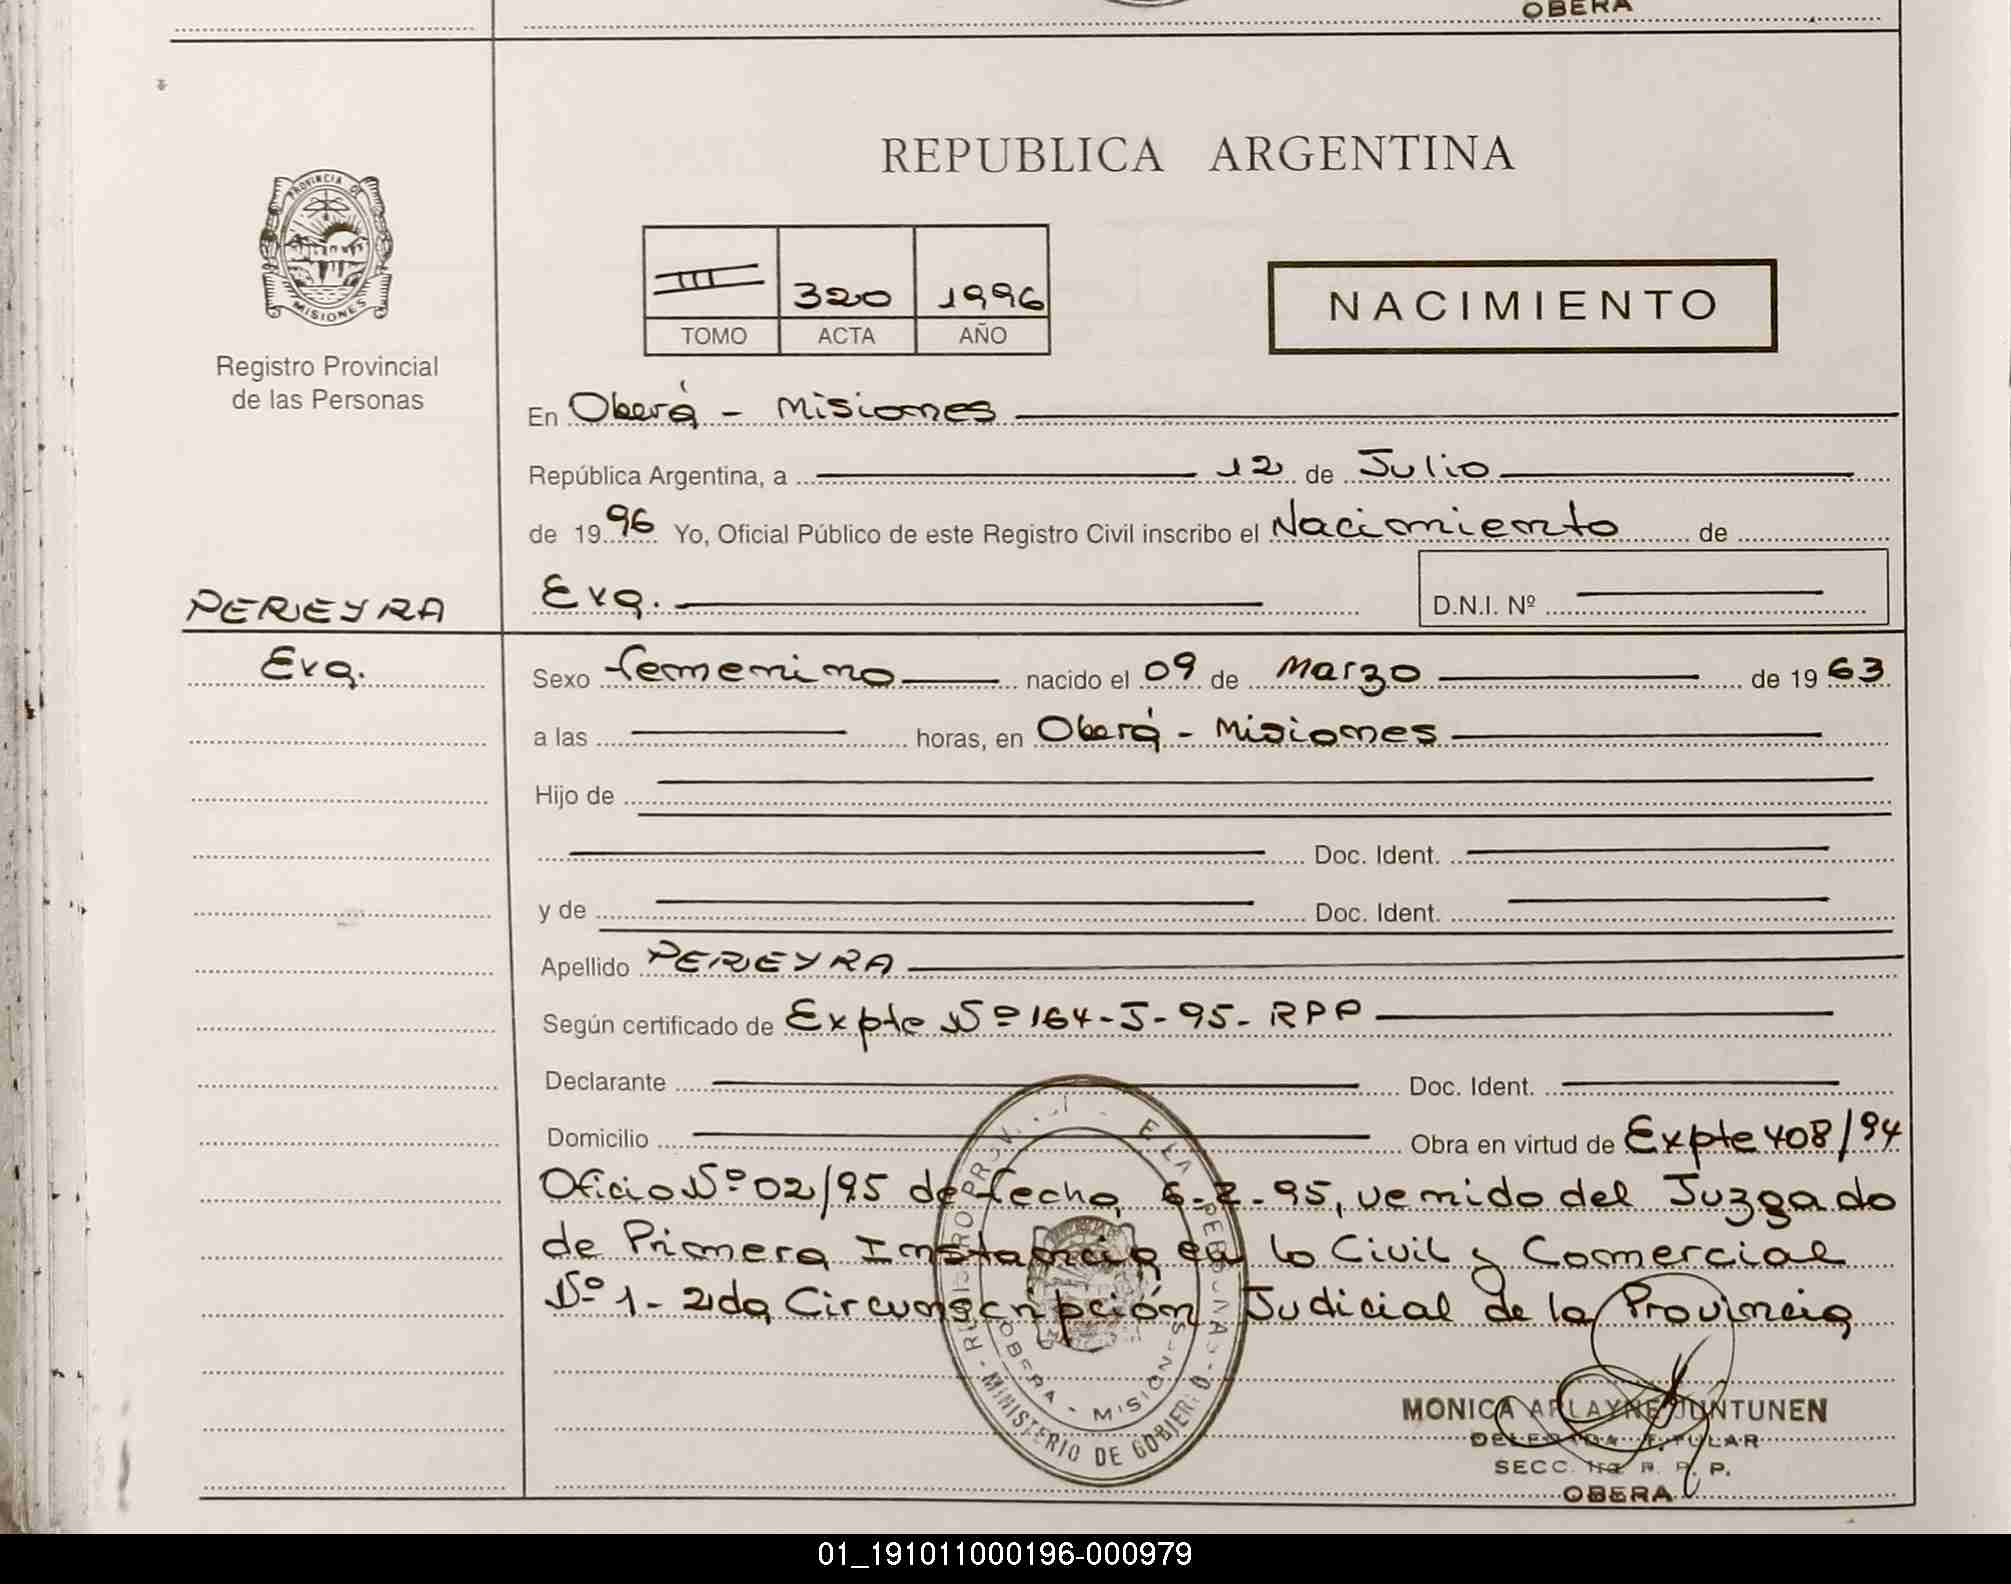 OBERA
PROVINCIA DE
MISIONES
Registro Provincial
de las Personas
REPUBLICA ARGENTINA
III 320 1996
TOMO ACTA AÑO
NACIMIENTO
En Oberá - Misiones
República Argentina, a 12 de Julio
de 1996 Yo, Oficial Público de este Registro Civil inscribo el Nacimiento de
PEREYRA
Eva.
D.N.I. Nº
Eva.
Sexo femenino nacido el 09 de Marzo de 1963
a las horas, en Oberá - Misiones
Hijo de
Doc. Ident.
y de Doc. Ident.
Apellido PEREYRA
Según certificado de Expte Nº 164-J-95- RPP
Declarante Doc. Ident.
Domicilio Obra en virtud de Expte 408/94
Oficio Nº 02/95 de fecha 6-2-95, venido del Juzgado
de Primera Instancia en lo Civil y Comercial
Nº 1- 2da Circunscripción Judicial de la Provincia
OBERA - MISIONES
MINISTERIO DE GOBIERNO
MONICA ARLAYNE JUNTUNEN
DELEGADA TITULAR
SECC. R. P. P.
OBERA
01_191011000196-000979